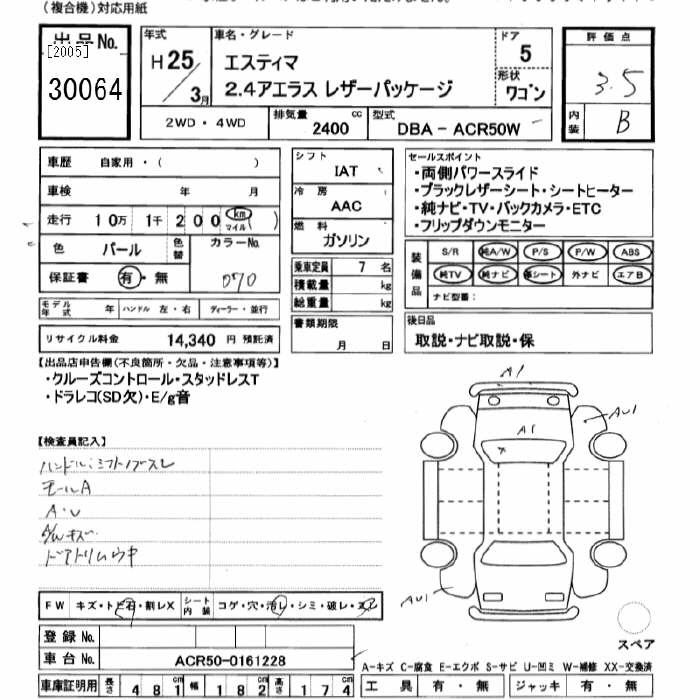 (複合機)対応用紙
出品No.
[2005]
30064
年式
H25/3月
車名・グレード
エスティマ
2.4アエラス レザーパッケージ
ドア
5
形状
ワゴン
評価点
3.5
内装
B
2WD・4WD
排気量
2400 cc
型式
DBA-ACR50W
車歴 自家用・( )
車検 年 月
走行 10万 1千 200 km マイル ( )
色 パール 色替 カラーNo.
保証書 有・無 070
モデル年式 年 ハンドル 左・右 ディーラー・並行
リサイクル料金 14,340 円 預託済
シフト
IAT
冷房
AAC
燃料
ガソリン
乗車定員 7 名
積載量 kg
総重量 kg
書類期限
月 日
セールスポイント
・両側パワースライド
・ブラックレザーシート・シートヒーター
・純ナビ・TV・バックカメラ・ETC
・フリップダウンモニター
装備品
S/R 純A/W P/S P/W ABS
純TV 純ナビ 革シート 外ナビ エアB
ナビ型番:
後日品
取説・ナビ取説・保
【出品店申告欄(不良箇所・欠品・注意事項等)】
・クルーズコントロール・スタッドレスT
・ドラレコ(SD欠)・E/g音
【検査員記入】
ハンドル:シフトノブスレ
モールA
A・U
A/Wキズ
ドアトリムウキ
A1
AU1
A1
AU1
FW キズ・トビ石・割レX シート内装 コゲ・穴・汚レ・シミ・破レ・スレ
登録No.
車台No. ACR50-0161228
スペア
A-キズ C-腐食 E-エクボ S-サビ U-凹ミ W-補修 XX-交換済
車庫証明用 長さ 481 cm 幅 182 cm 高さ 174 cm
工具 有・無 ジャッキ 有・無